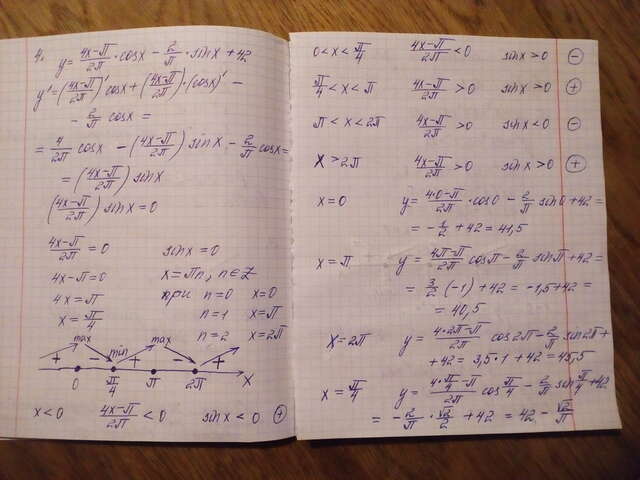 4. y = (4x-π)/2π · cosx - 2/π · sinx + 42
y' = ((4x-π)/2π)' cosx + ((4x-π)/2π)·(cosx)' -
- 2/π cosx =
= 4/2π cosx - ((4x-π)/2π) sinx - 2/π cosx =
= ((4x-π)/2π) sinx
((4x-π)/2π) sinx = 0
(4x-π)/2π = 0 sinx = 0
4x-π = 0 x = πn, n∈Z
4x = π при n=0 x=0
x = π/4 n=1 x=π
n=2 x=2π
max min max
+ - + - +
0 π/4 π 2π x
x<0 (4x-π)/2π <0 sinx<0 +
0<x<π/4 (4x-π)/2π <0 sinx>0 -
π/4<x<π (4x-π)/2π >0 sinx>0 +
π<x<2π (4x-π)/2π >0 sinx<0 -
x>2π (4x-π)/2π >0 sinx>0 +
x=0 y = (4·0-π)/2π · cos0 - 2/π sin0 + 42 =
= -1/2 + 42 = 41,5
x=π y = (4π-π)/2π cosπ - 2/π sinπ + 42 =
= 3/2 (-1) + 42 = -1,5+42 =
= 40,5
x=2π y = (4·2π-π)/2π cos2π - 2/π sin2π +
+42 = 3,5·1+42 = 45,5
x=π/4 y = (4·π/4-π)/2π cos π/4 - 2/π sin π/4 + 42
= -2/π · √2/2 + 42 = 42 - √2/π